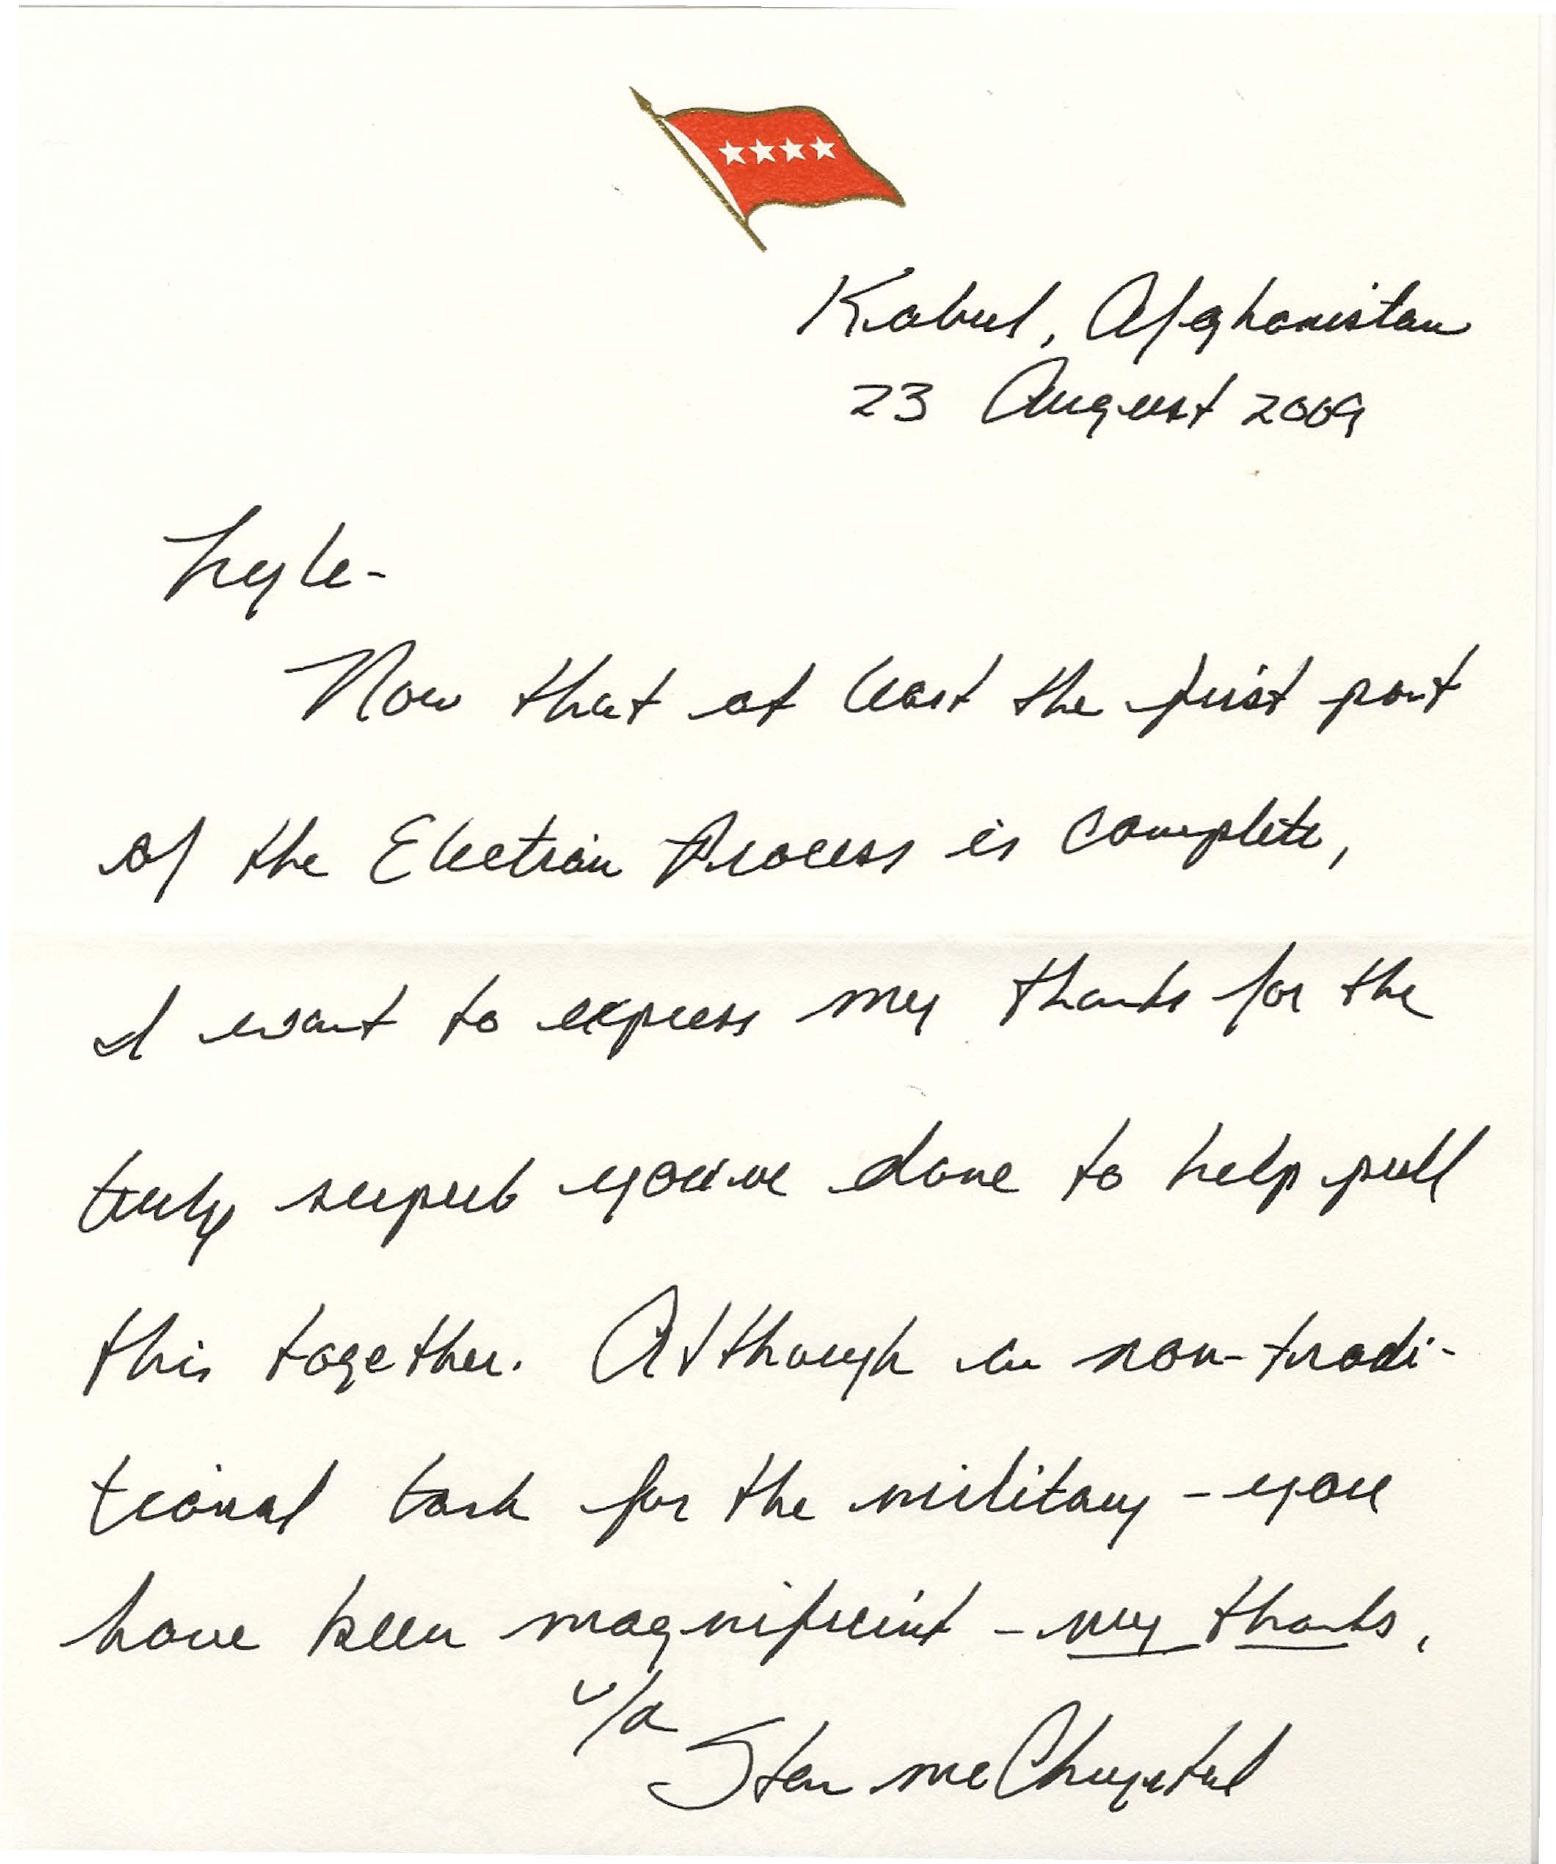 Kabul, Afghanistan
23 August 2009
Lyle-
Now that at least the first part
of the Election Process is complete,
I want to express my thanks for the
truly superb you've done to help pull
this together. Although a non-tradi-
tional task for the military - you
have been magnificent - my thanks,
v/r
Stan McChrystal